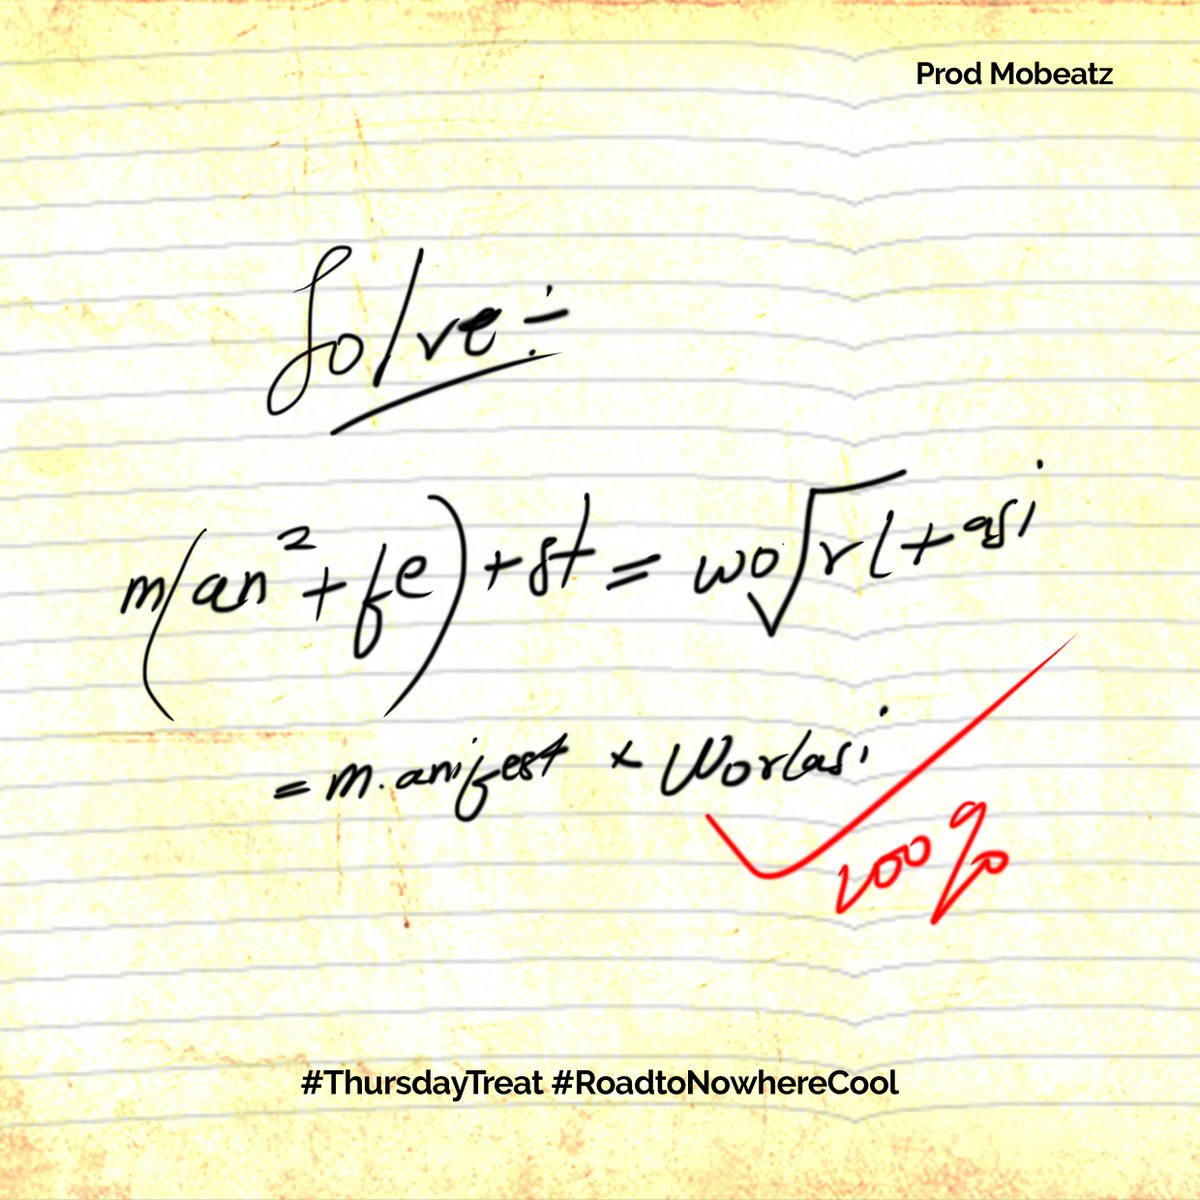 Prod Mobeatz
Solve ÷
m(an²+fe)+st = wo√rl+asi
= m.anifest x Worlasi
100%
#ThursdayTreat #RoadtoNowhereCool